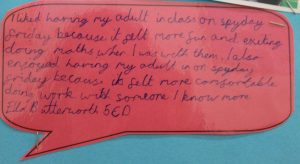 I liked having my adult in class on spyday
friday because it felt more fun and exiting
doing maths when I was with them. I also
enjoyed having my adult in on spyday
friday because it felt more comfortable
doing work with someone I know more
Ella Butterworth 5ED